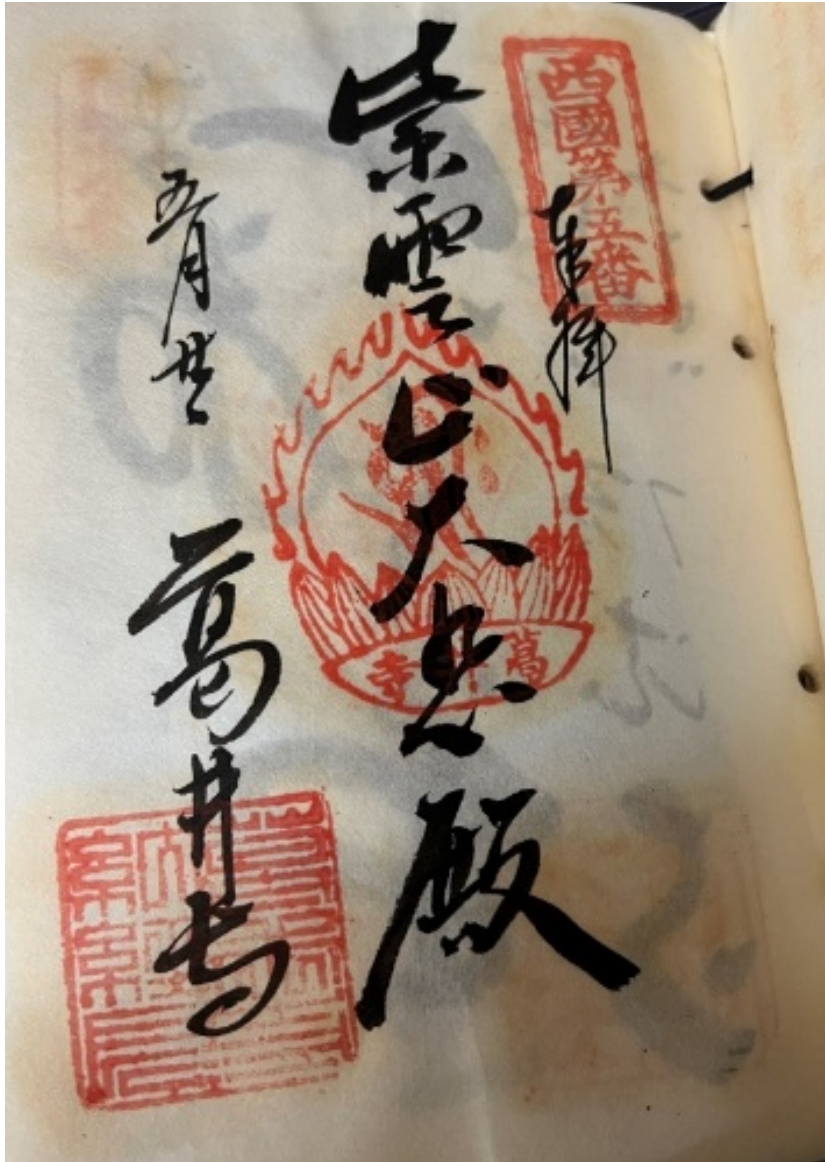 西國第五番
奉拝
紫雲山大悲殿
葛井寺
五月廿
葛井寺